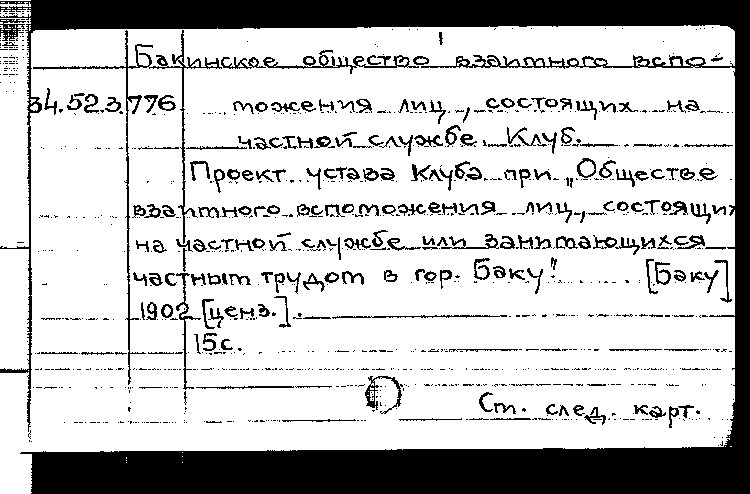 Бакинское общество взаимного вспо-
34.52.3.776 можения лиц, состоящих на
частной службе. Клуб.
Проект устава Клуба при „Обществе
взаимного вспоможения лиц, состоящих
на частной службе или занимающихся
частным трудом в гор. Баку". [Баку]
1902 [ценз.].
15с.
См. след. карт.